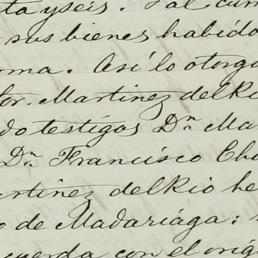 ta y seis. Tal cum
sus bienes habido
oma. Asi lo otorgo
or. Martinez del Ri
do testigos Dn. Ma
Dn. Francisco Cha
artinez del Rio he
o de Madariaga:
cuerda con el orig